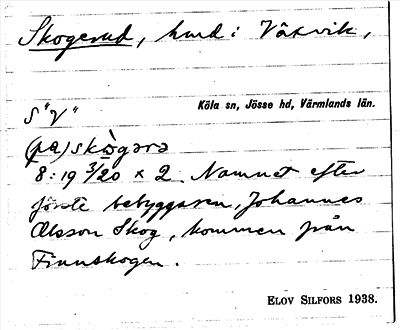 Skogerud, hmd i Växvik,
Köla sn, Jösse hd, Värmlands län.
S "V"
(pa) skògərə
8:19 3/20 x 2. Namnet efter
förste bebyggaren, Johannes
Olsson Skog, kommen från
Finnskogen.
ELOV SILFORS 1938.